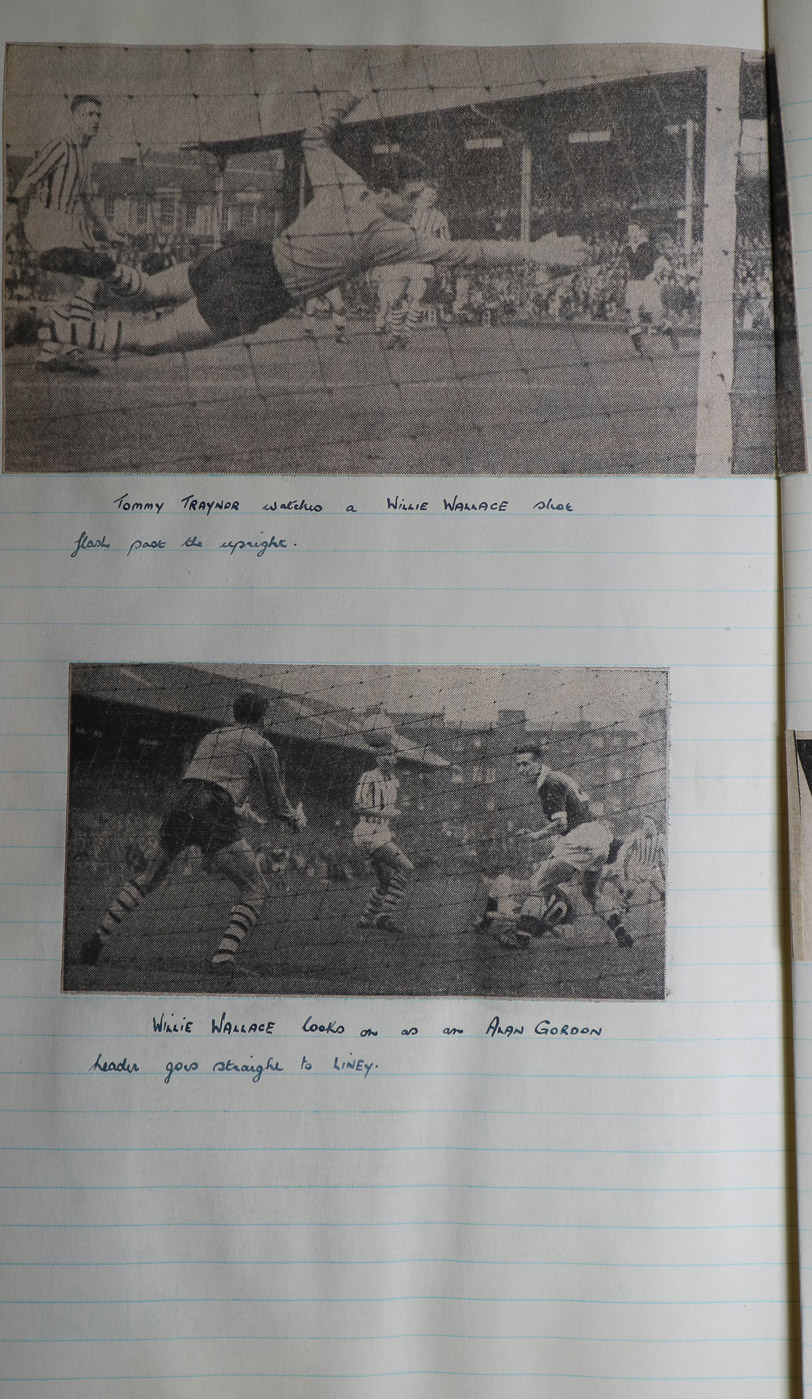 Tommy TRAYNOR watches a WILLIE WALLACE shot
flash past the upright.
WILLIE WALLACE looks on as an ALAN GORDON
header goes straight to LINEY.